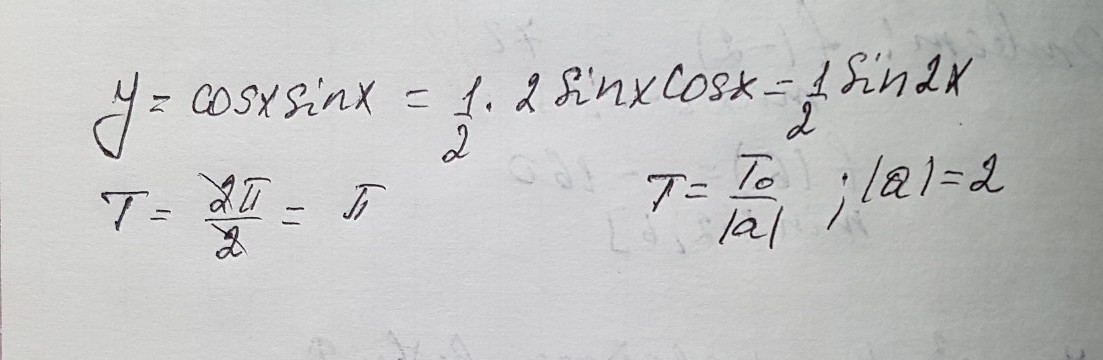 y = cosx sinx = 1/2 · 2 sinx cosx = 1/2 sin2x
T = 2π/2 = π T = T₀/|a| ; |a| = 2